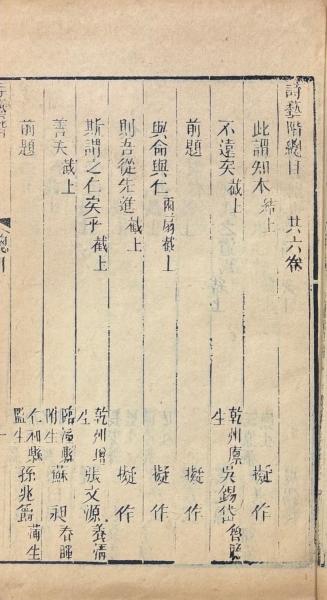 詩藝階總目　共六卷
此謂知本 結上　擬作
不遠矣 截上　乾州廩生 吳錫岱 魯瞻
前題　擬作
與命與仁 兩扇截上　擬作
則吾從先進 截上　擬作
斯謂之仁矣乎 截上　乾州增生 張文源 養清
善夫 截上　臨潼縣附生 蘇昶 春暉
前題　仁和縣監生 孫兆爵 蒲生